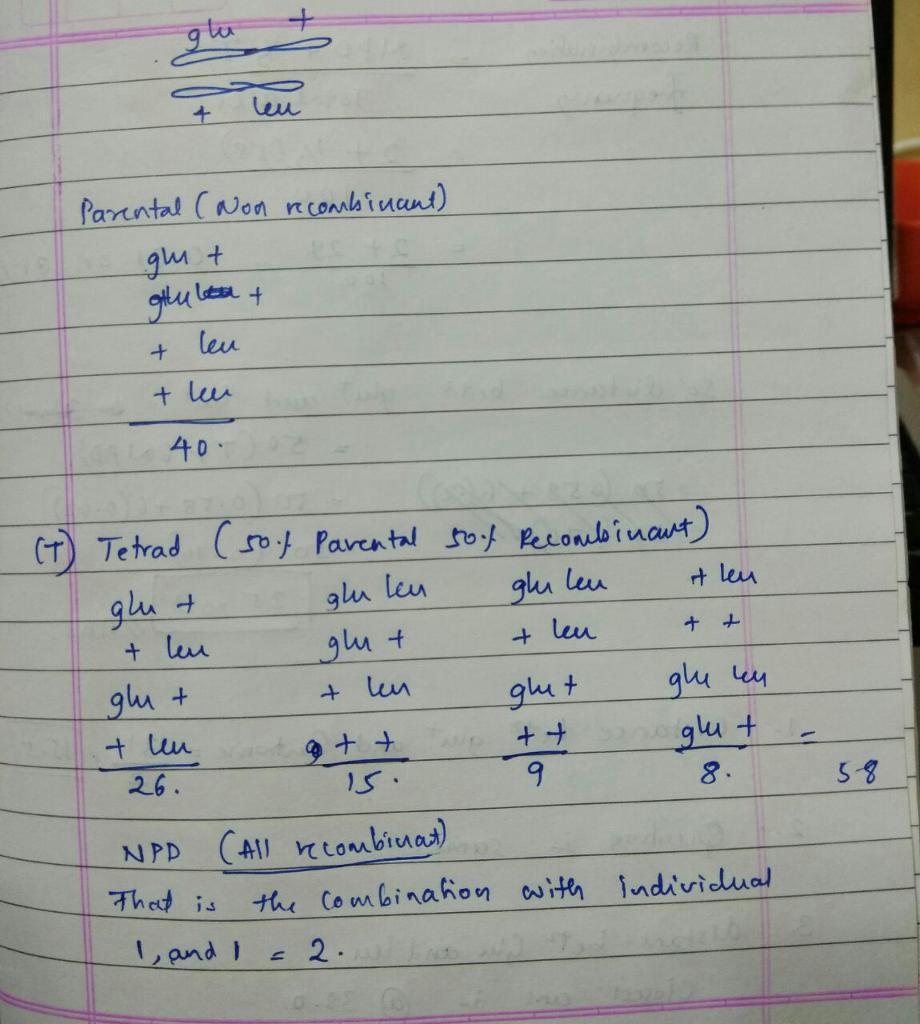 glu +
+ leu
Parental (Non recombinant)
glu +
glu +
+ leu
+ leu
40.
(T) Tetrad (50% Parental 50% Recombinant)
glu + glu leu glu leu + leu
+ leu glu + + leu + +
glu + + leu glu + glu leu
+ leu + + + + glu + =
26. 15. 9 8. 58
NPD (All recombinat)
That is the combination with individual
1, and 1 = 2.